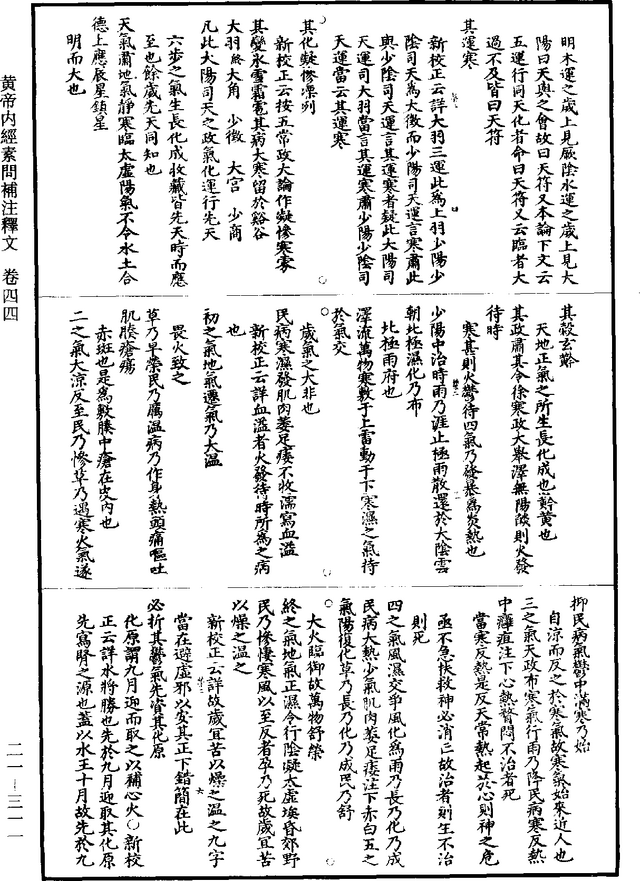 黄帝内經素問補注釋文　卷四四
明木運之歲上見厥陰水運之歲上見大
陽曰天與之會故曰天符又本論下文云
五運行同天化者命曰天符又云臨者大
過不及皆曰天符
其運寒
新校正云詳大羽三運此爲上羽少陽少
陰司天爲大徵而少陽司天運言寒肅此
與少陰司天運言其運寒者疑此大陽司
天運司大羽當言其運寒肅少陽少陰司
天運當云其運寒
其化凝慘凓冽
新校正云按五常政大論作凝慘寒雰
其變冰雪霜雹其病大寒留於谿谷
大羽終大角　少徵　大宮　少商
凡此大陽司天之政氣化運行先天
六步之氣生長化成收藏皆先天時而應
至也餘歲先天同知也
天氣肅地氣靜寒臨太虛陽氣不令水土合
德上應辰星鎮星
明而大也
其穀玄黅
天地正氣之所生長化成也黅黄也
其政肅其令徐寒政大舉澤無陽燄則火發
待時
寒甚則火鬱待四氣乃發暴爲炎熱也
少陽中治時雨乃涯止極雨散還於大陰雲
朝北極濕化乃布
北極雨府也
澤流萬物寒敷于上雷動于下寒濕之氣持
於氣交
歲氣之大非也
民病寒濕發肌肉萎足痿不收濡寫血溢
新校正云詳血溢者火發待時所爲之病
也
初之氣地氣遷氣乃大温
畏火致之
草乃早榮民乃厲温病乃作身熱頭痛嘔吐
肌腠瘡瘍
赤斑也是爲敷腠中瘡在皮内也
二之氣大凉反至民乃慘草乃遇寒火氣遂
抑民病氣鬱中滿寒乃始
自凉而反之於寒氣故寒氣始來近人也
三之氣天政布寒氣行雨乃降民病寒反熱
中癰疽注下心熱瞀悶不治者死
當寒反熱是反天常熱起於心則神之危
亟不急扶救神必消亡故治者則生不治
則死
四之氣風濕交爭風化爲雨乃長乃化乃成
民病大熱少氣肌肉萎足痿注下赤白五之
氣陽復化草乃長乃化乃成民乃舒
大火臨御故萬物舒榮
終之氣地氣正濕令行陰凝太虛埃昏郊野
民乃慘悽寒風以至反者孕乃死故歲宜苦
以燥之温之
新校正云詳故歲宜苦以燥之温之九字
當在避虛邪以安其正下錯簡在此
必折其鬱氣先資其化原
化原謂九月迎而取之以補心火○新校
正云詳水將勝也先於九月迎取其化原
先寫腎之源也蓋以水王十月故先於九
二一—三一一